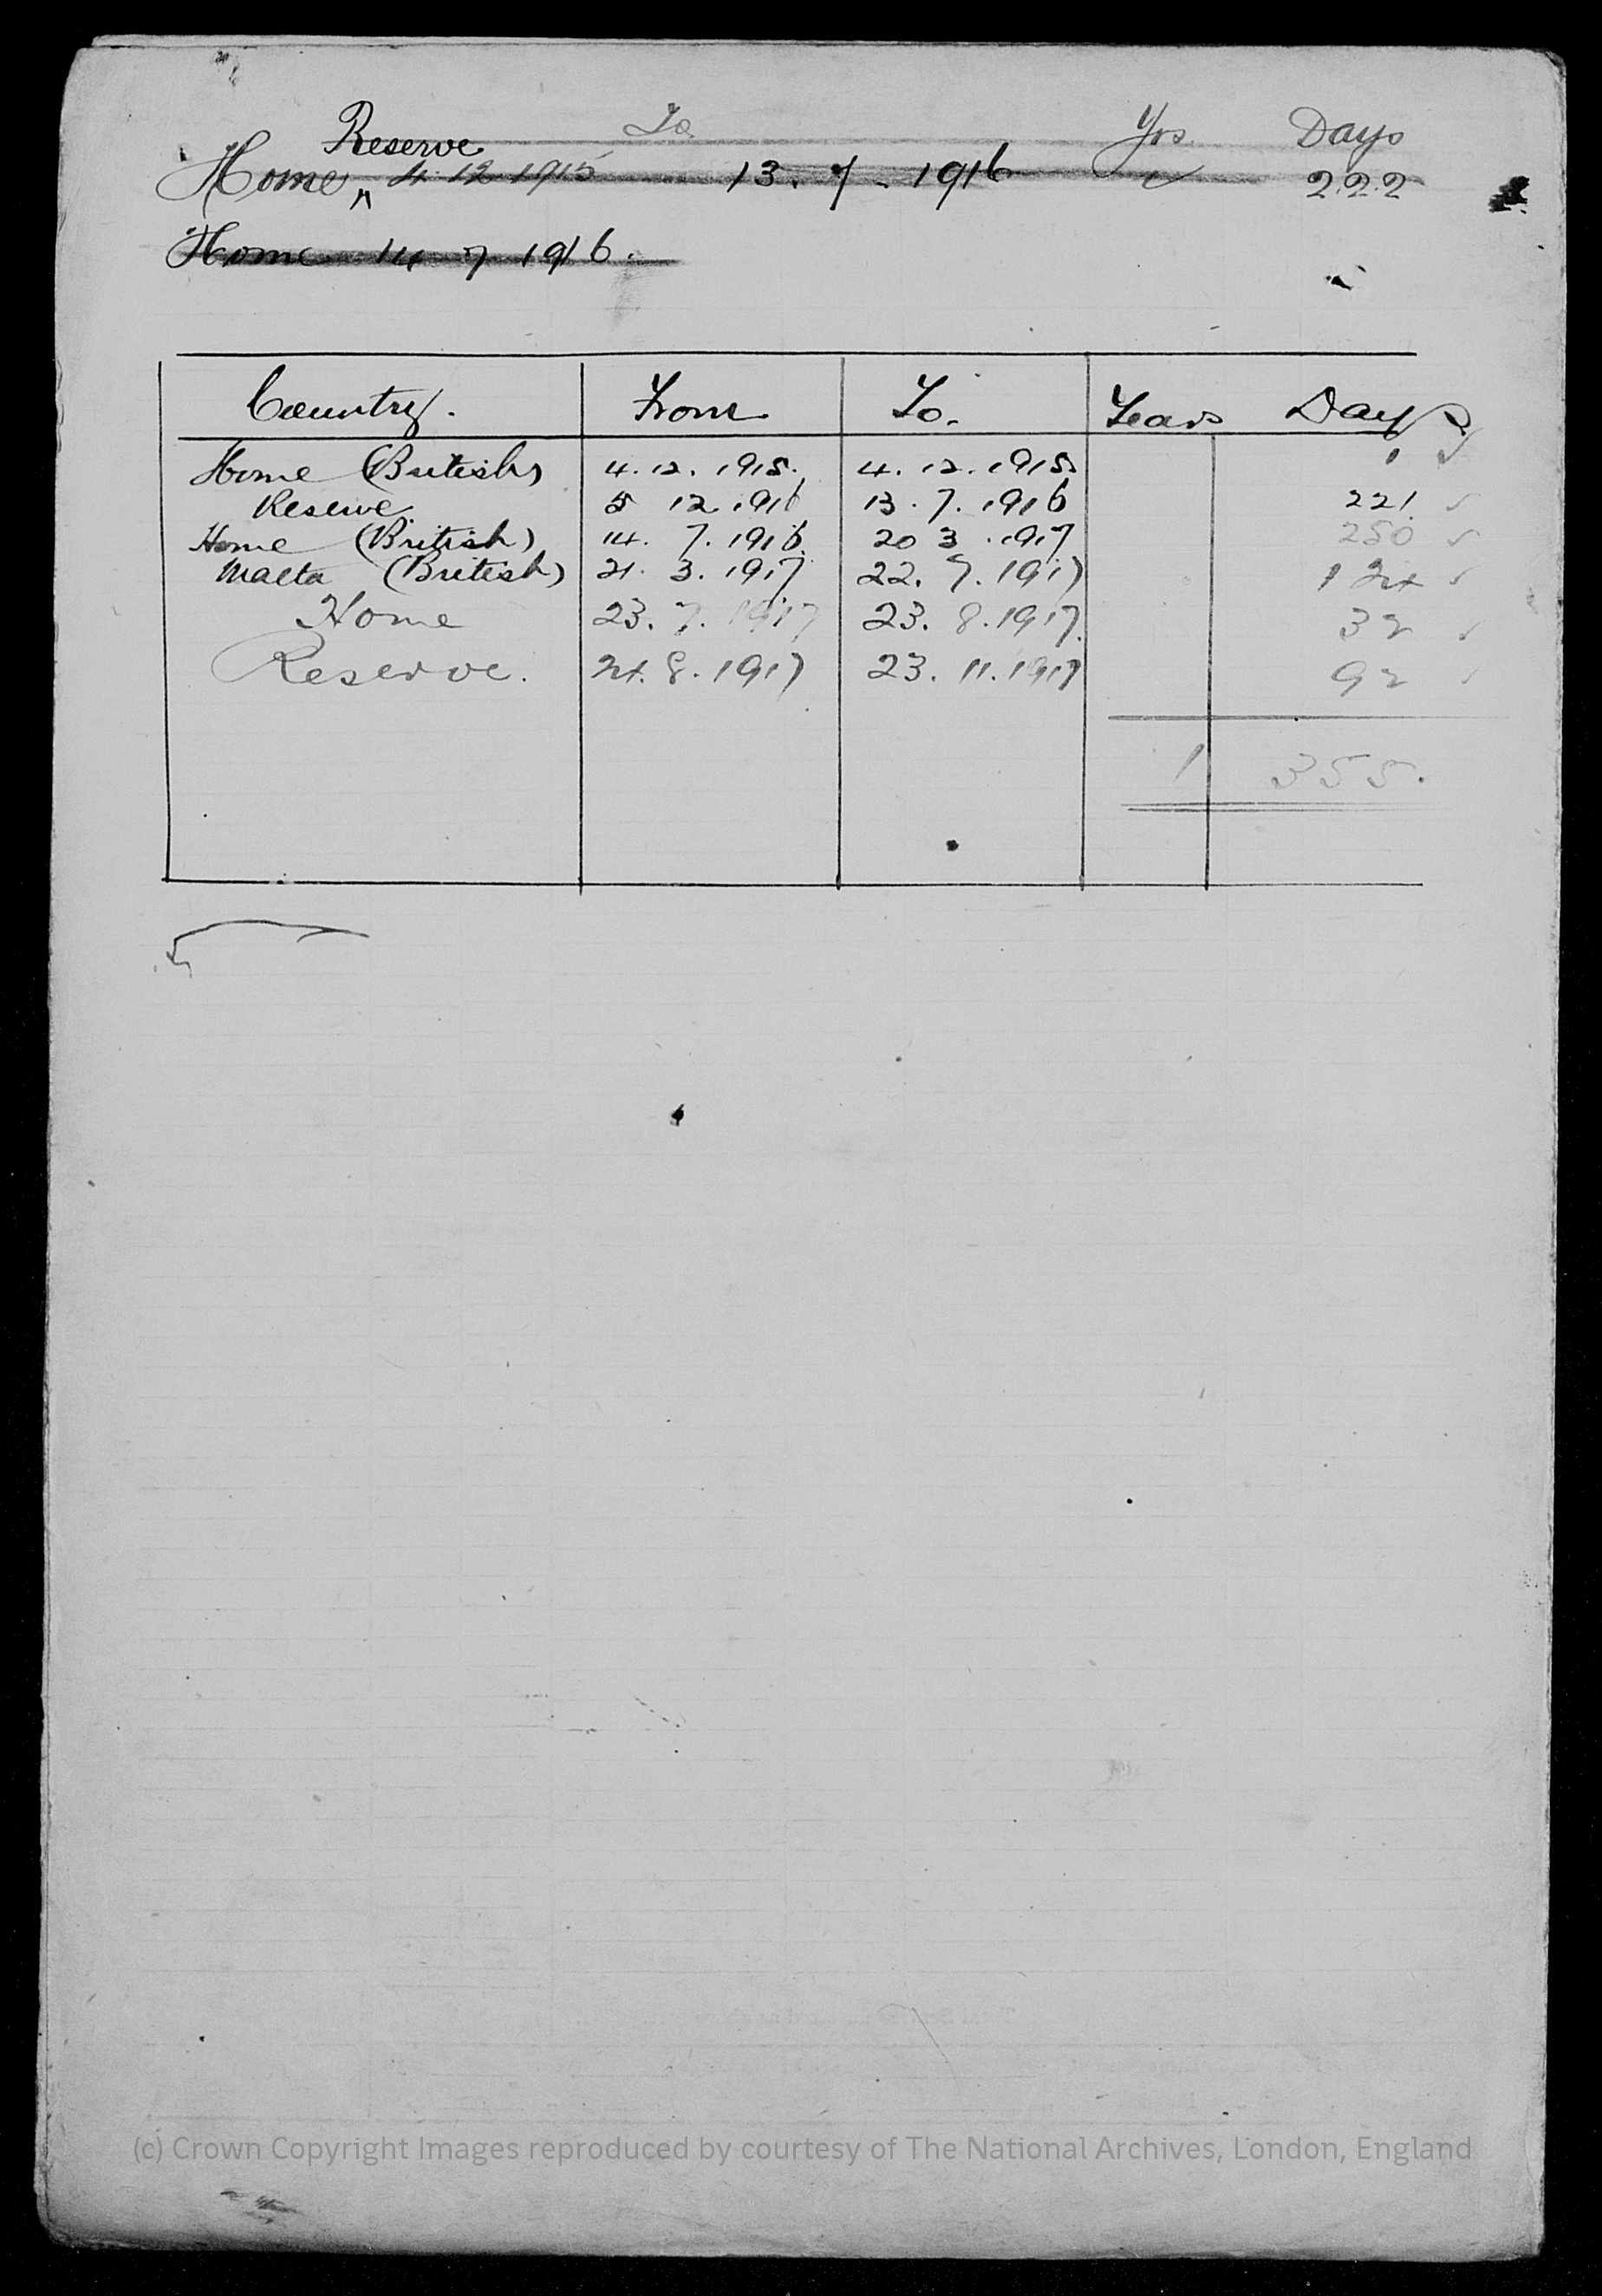 To Yrs Days
Reserve
Home ^ 4 12 1915 13. 7. 1916 222
Home 14 7 1916.
Country. From To. Years Days
Home (British) 4. 12. 1915. 4. 12. 1915 1
Reserve 5 12 1916 13. 7. 1916 221.
Home (British) 14. 7. 1916 20 3. 1917 250
Malta (British) 21. 3. 1917 22. 7. 1917 124
Home 23. 7. 1917 23. 8. 1917. 32
Reserve. 24. 8. 1917 23. 11. 1917 92
1 355.
(c) Crown Copyright Images reproduced by courtesy of The National Archives, London, England